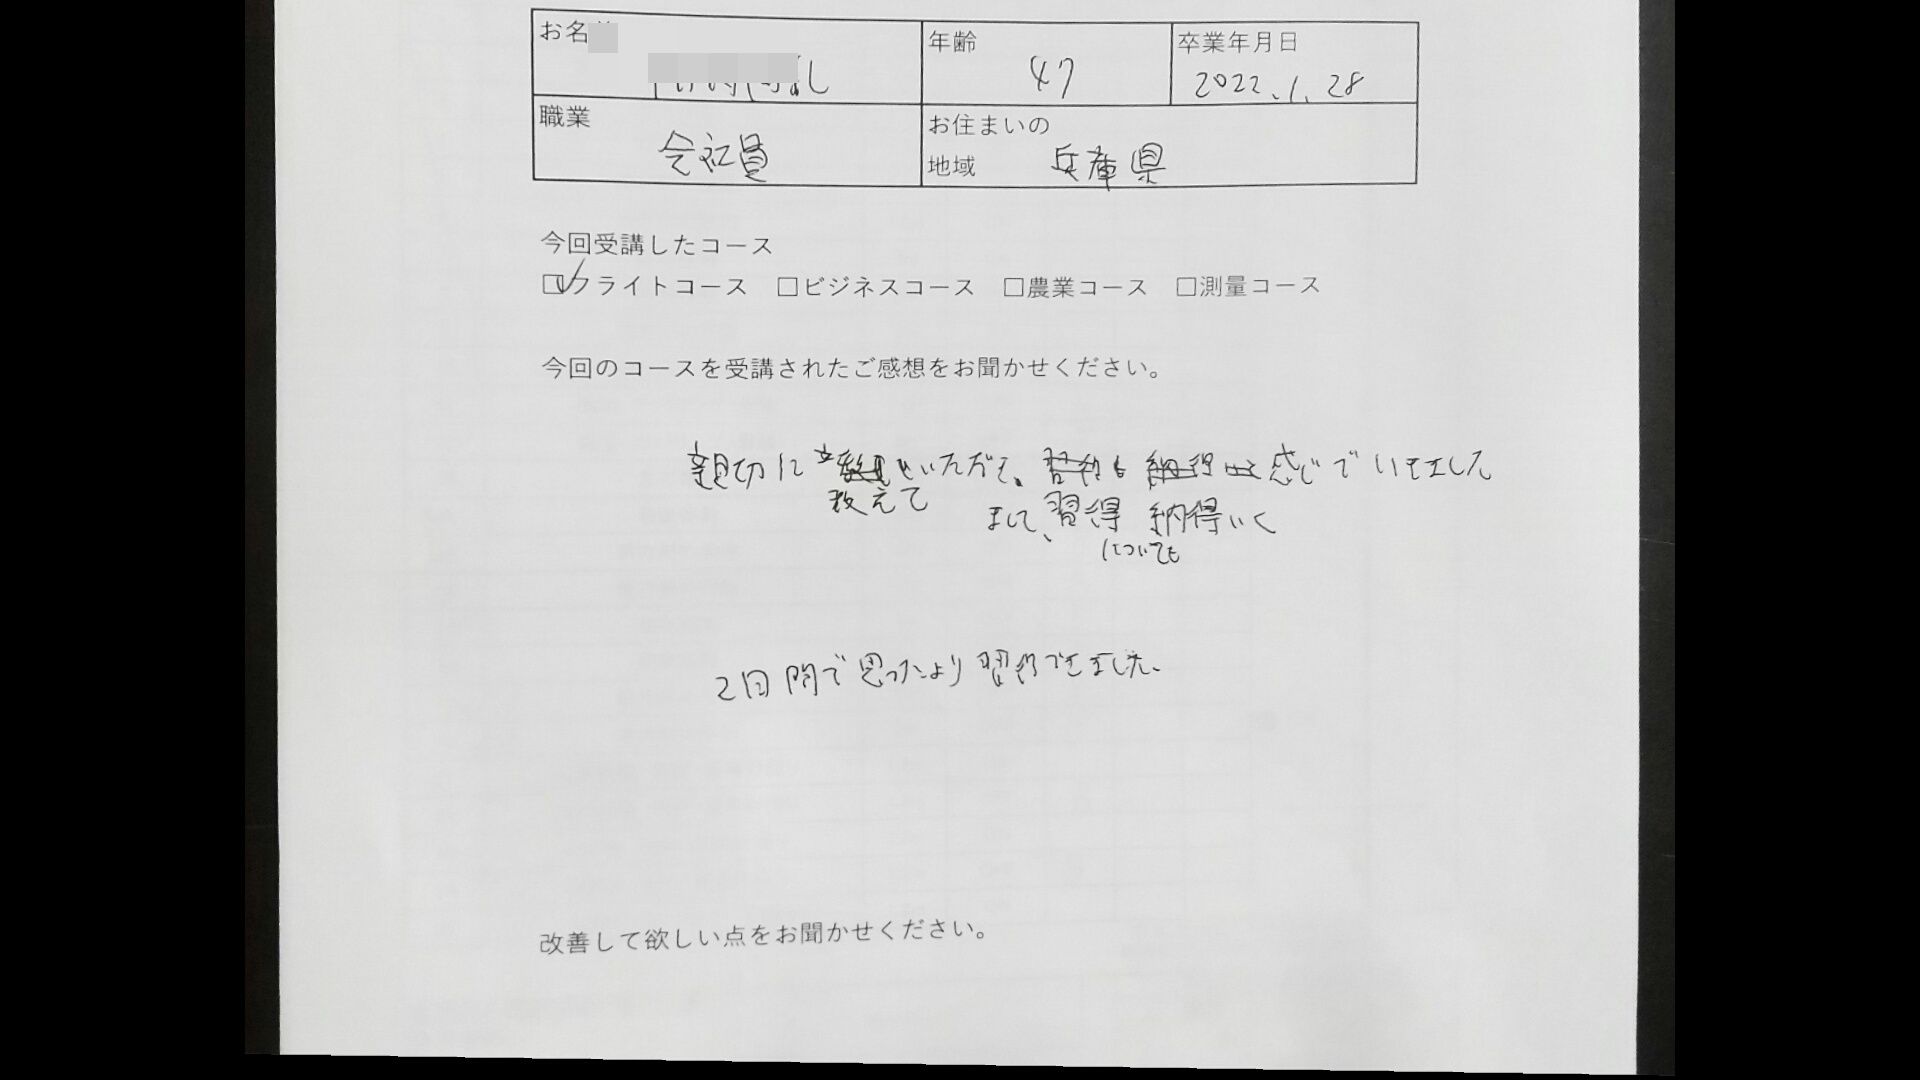 お名
年齢
47
卒業年月日
2022.1.28
職業
会社員
お住まいの
地域
兵庫県
今回受講したコース
☑フライトコース □ビジネスコース □農業コース □測量コース
今回のコースを受講されたご感想をお聞かせください。
親切に いただき、 感じでいました
教えて まして、習得 納得いく
についても
2日間で思ったより習得できました。
改善して欲しい点をお聞かせください。